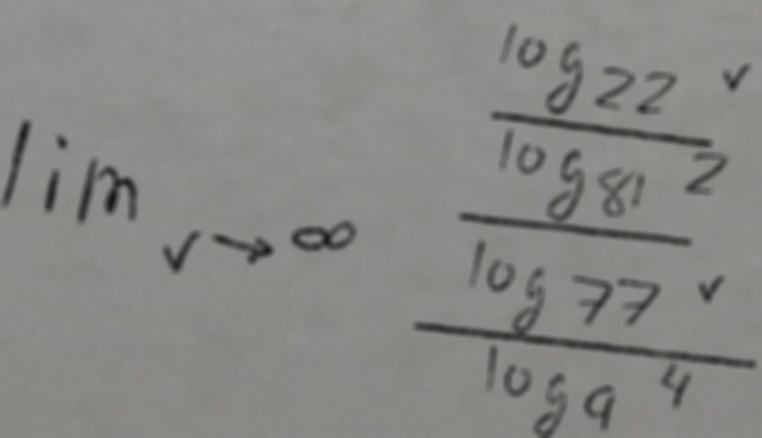 lim v→∞ \frac{\frac{\frac{\log_{22} v}{\log_{81} 2}}{\log_{77} v}}{\log_{9} 4}